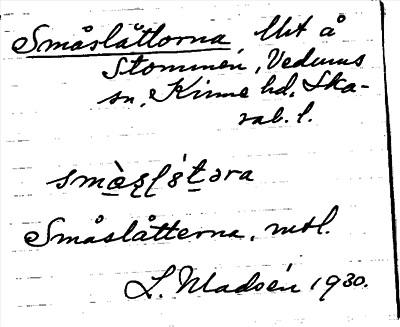 Småslåttorna, Urt å
Stommen, Vedums
sn, Kinne hd, Ska-
rab. l.
småslåt̲əra
Småslåtterna, mtl.
L. Madsén 1930.